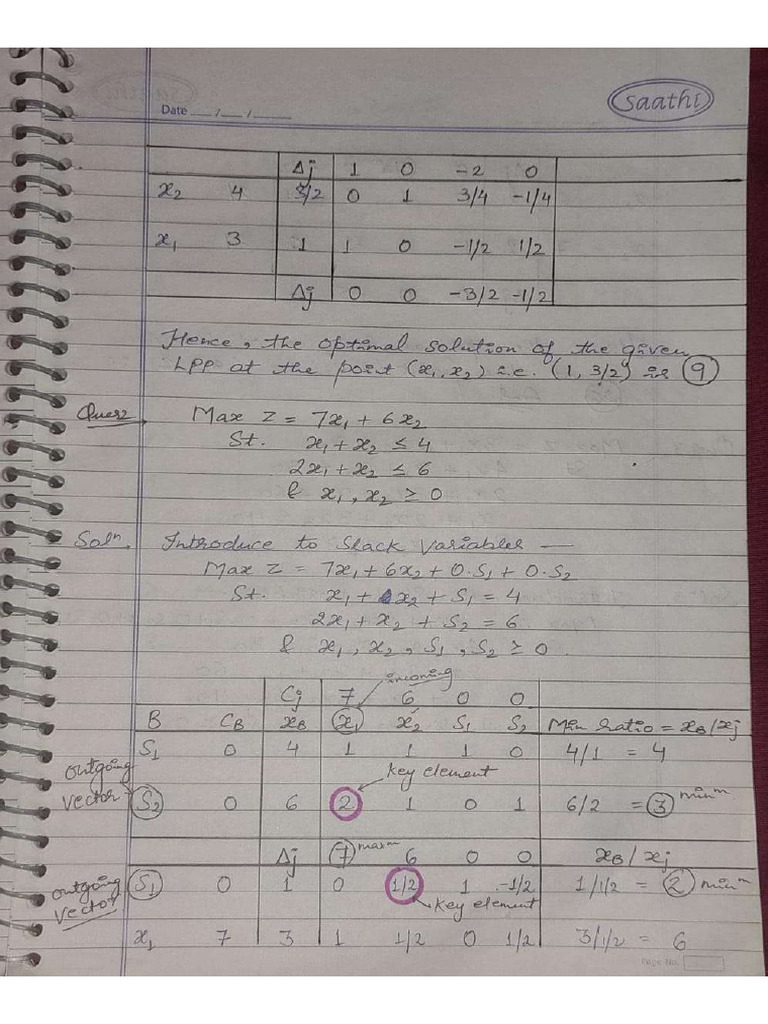 saathi
Date __/__/____
Δj 1 0 -2 0
x₂ 4 3/2 0 1 3/4 -1/4
x₁ 3 1 1 0 -1/2 1/2
Δj 0 0 -3/2 -1/2
Hence, the optimal solution of the given
LPP at the point (x₁, x₂) i.e. (1, 3/2) is 9
Max Z = 7x₁ + 6x₂
St. x₁ + x₂ ≤ 4
2x₁ + x₂ ≤ 6
& x₁, x₂ ≥ 0
Solⁿ. Introduce to Slack Variables —
Max Z = 7x₁ + 6x₂ + 0.S₁ + 0.S₂
St. x₁ + x₂ + S₁ = 4
2x₁ + x₂ + S₂ = 6
& x₁, x₂, S₁, S₂ ≥ 0.
incoming
Cj 7 6 0 0
B CB xB x₁ x₂ S₁ S₂ Min ratio = xB/xj
S₁ 0 4 1 1 1 0 4/1 = 4
outgoing vector
key element
S₂ 0 6 2 1 0 1 6/2 = 3 minᵐ
Δj 7 maxᵐ 6 0 0 xB/xj
outgoing vector
S₁ 0 1 0 1/2 1 -1/2 1/1/2 = 2 minᵐ
key element
x₁ 7 3 1 1/2 0 1/2 3/1/2 = 6
Page No.